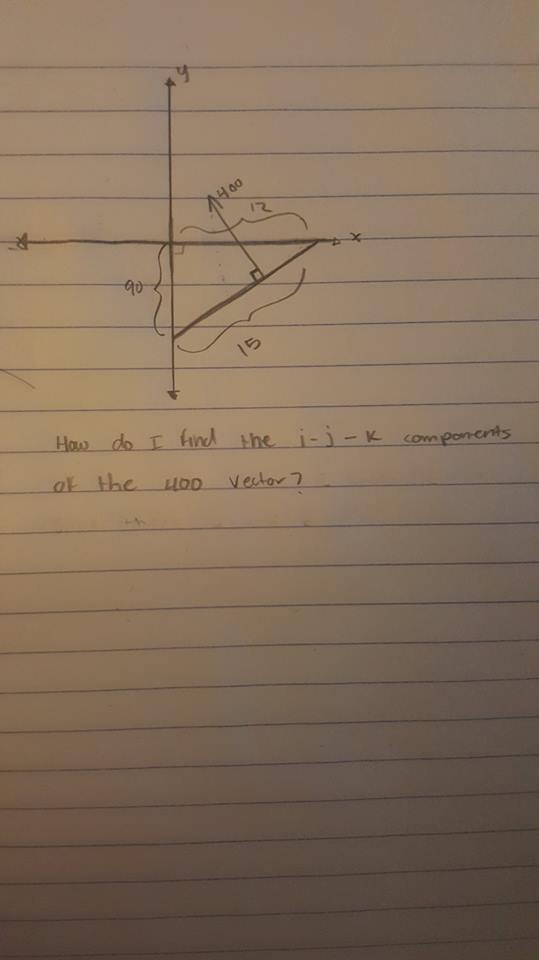 y
400
12
x
90
15
How do I find the i-j-k components
of the 400 vector?